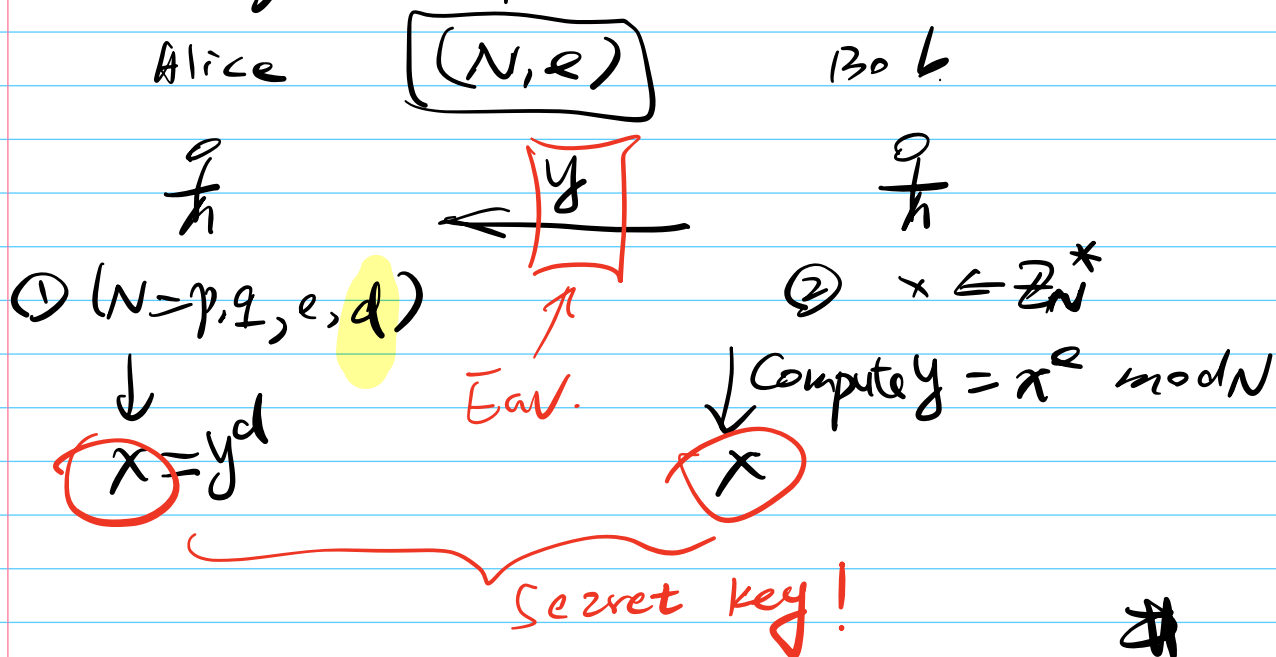 Alice (N,e) Bob
y
① (N=p,q,e,d) ② x ← ℤ_N^*
Eav. Compute y = x^e mod N
x = y^d x
Sezret key!